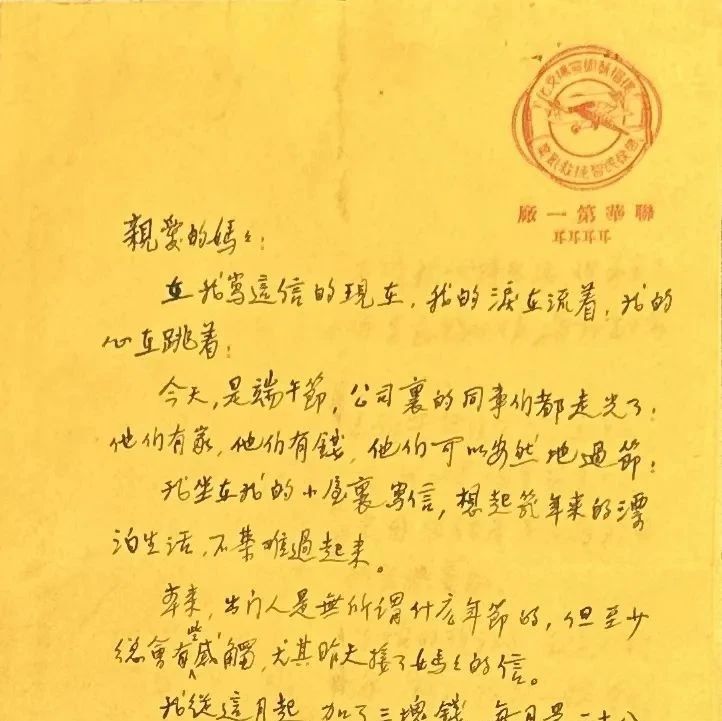 聯華第一廠
親愛的媽々：
在我寫這信的現在，我的淚在流着，我的
心在跳着；
今天，是端午節，公司裏的同事们都走光了；
他们有家，他们有錢，他们可以安然地過節；
我坐在我的小屋裏寫信，想起幾年來的漂
泊生活，不禁难過起来。
本来，出门人是無所谓什広年節的，但至少
總會有些感觸，尤其昨天接了媽々的信。
我從這月起，加了三塊錢，每月是二十八